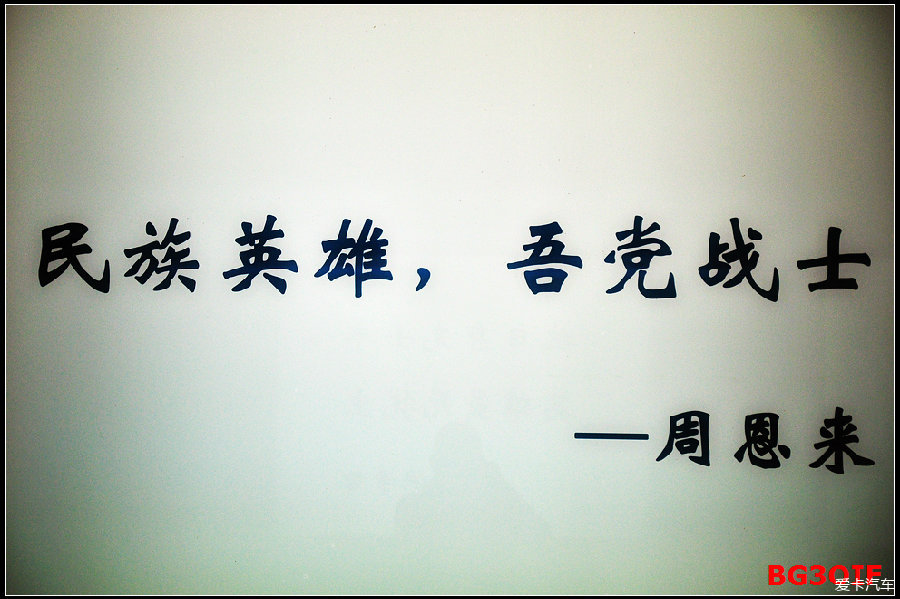 民族英雄，吾党战士
—周恩来
BG3OIF
爱卡汽车